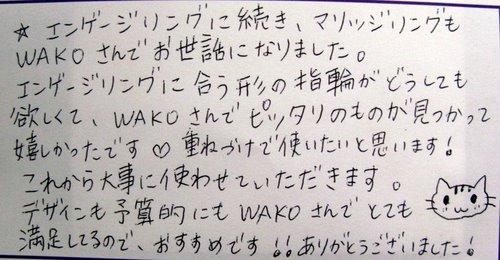 ☆ エンゲージリングに続き、マリッジリングも
WAKOさんでお世話になりました。
エンゲージリングに合う形の指輪がどうしても
欲しくて、WAKOさんでピッタリのものが見つかって
嬉しかったです♡ 重ねづけで使いたいと思います!
これから大事に使わせていただきます。
デザインも予算的にもWAKOさんでとても
満足してるので、おすすめです!!ありがとうございました!